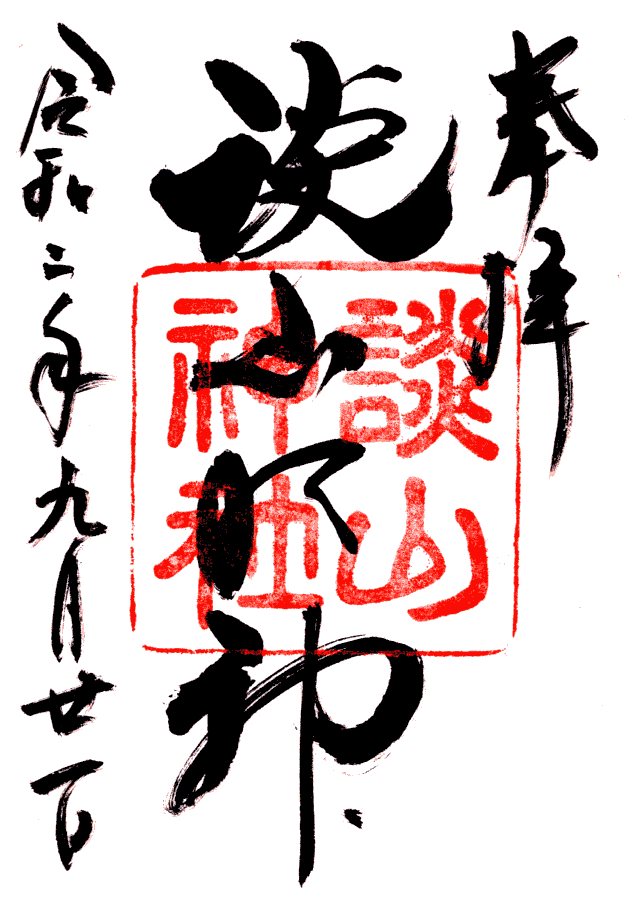 奉拝
談山明神
談山神社
令和二年九月廿一日